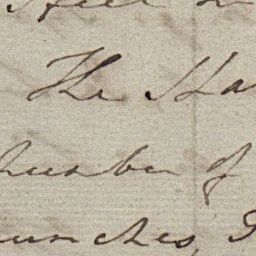 The Ha
number of
unches, I